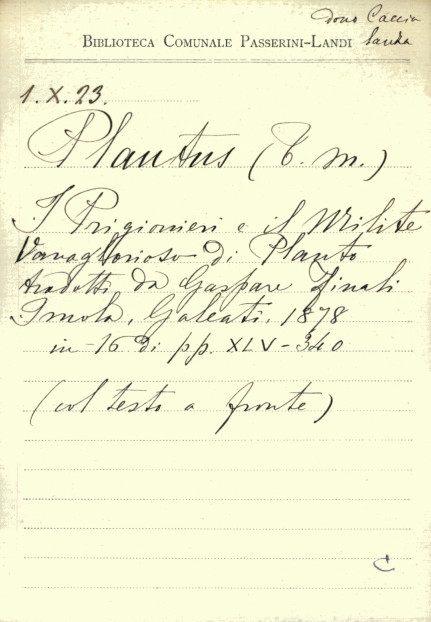 dono Caccia
Landa
BIBLIOTECA COMUNALE PASSERINI-LANDI
1.X.23.
Plautus (T. M.)
I Prigionieri e il Milite
Vanaglorioso di Plauto
tradotti da Gaspare Finali
Imola, Galeati, 1878
in-16 di pp. XLV-340
(col testo a fronte)
C